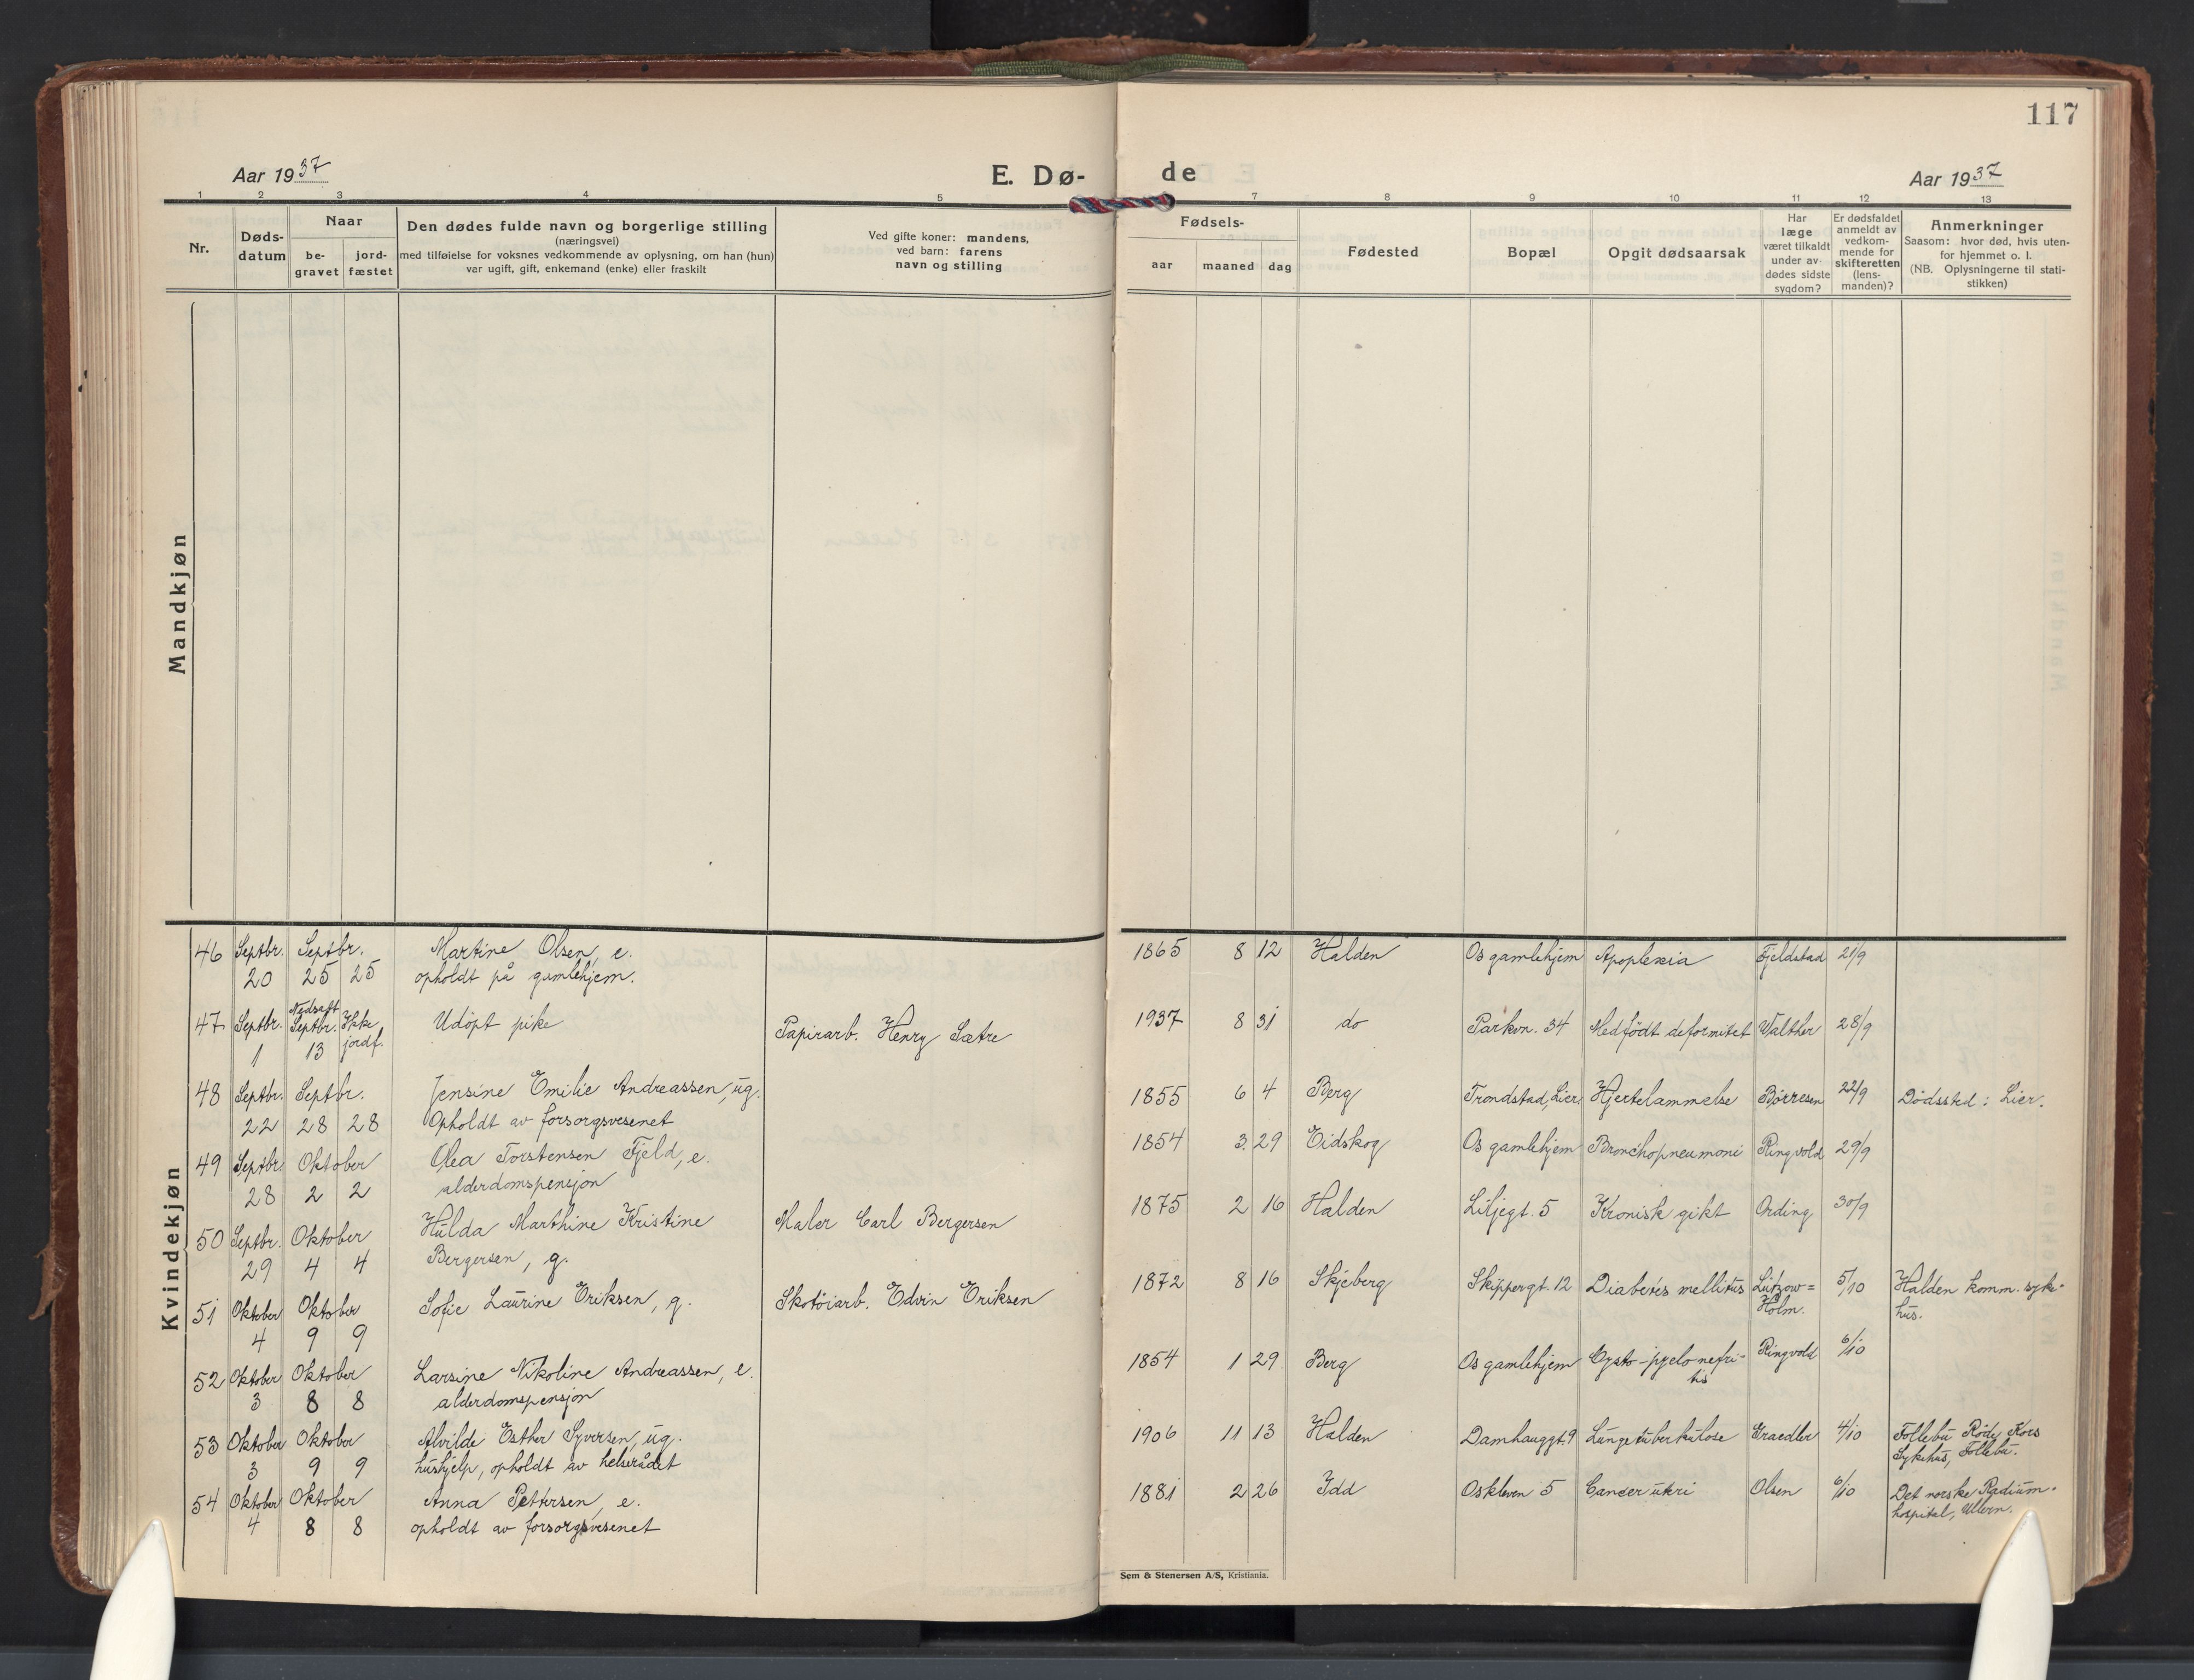 117
Aar 1937
E. Dø-
de
Aar 1937
1 2 3 4 5 7 8 9 10 11 12 13
Nr.
Døds-
datum
Naar
be-
gravet
jord-
fæstet
Den dødes fulde navn og borgerlige stilling
(næringsvei)
med tilføielse for voksnes vedkommende av oplysning, om han (hun)
var ugift, gift, enkemand (enke) eller fraskilt
Ved gifte koner: mandens,
ved barn: farens
navn og stilling
Fødsels-
aar maaned dag
Fødested
Bopæl
Opgit dødsaarsak
Har
læge
været tilkaldt
under av-
dødes sidste
sygdom?
Er dødsfaldet
anmeldt av
vedkom-
mende for
skifteretten
(lens-
manden)?
Anmerkninger
Saasom: hvor død, hvis uten-
for hjemmet o. l.
(NB. Oplysningerne til stati-
stikken)
Mandkjøn
Kvindekjøn
46 Septbr. Septbr. Martine Olsen, e. 1865 8 12 Halden Os gamlehjem Apoplexia Fjeldstad 21/9
20 25 25 opholdt på gamlehjem.
47 Septbr. Nedsatt Septbr. Ikke Udöpt pike Papirarb. Henry Sætre 1937 8 31 do Parkvn. 34 Medfödt deformitet Walther 28/9
1 13 jordf.
48 Septbr. Septbr. Jensine Emilie Andreassen, ug. 1855 6 4 Berg Trondstad, Lier. Hjertelammelse Börresen 22/9 Dödssted: Lier.
22 28 28 Opholdt av forsorgsvesenet
49 Septbr. Oktober Olea Torstensen Fjeld, e. 1854 3 29 Eidskog Os gamlehjem Bronchopneumoni Ringvold 29/9
28 2 2 alderdomspensjon
50 Septbr. Oktober Hulda Marthine Kristine Maler Carl Bergersen 1875 2 16 Halden Liljegt. 5 Kronisk gikt Ording 30/9
29 4 4 Bergersen, g.
51 Oktober Oktober Sofie Laurine Eriksen, g. Skotöiarb. Edvin Eriksen 1872 8 16 Skjeberg Skippergt. 12 Diabetes mellitus Lützow= 5/10 Halden komm. syke-
4 9 9 Holm. hus.
52 Oktober Oktober Larsine Nikoline Andreassen, e. 1854 1 29 Berg Os gamlehjem Cysto-pyelonefri- Ringvold 6/10
3 8 8 alderdomspensjon tis
53 Oktober Oktober Alvilde Esther Syversen, ug. 1906 11 13 Halden Damhauggt. 9 Lungetuberkulose Graedler 4/10 Follebu Röde Kors
3 9 9 hushjelp, opholdt av helserådet Sykehus, Follebu.
54 Oktober Oktober Anna Pettersen, e. 1881 2 26 Idd Oskleven 5 Cancer uteri Olsen 6/10 Det norske Radium-
4 8 8 opholdt av forsorgsvesenet hospital, Ullern.
Sem & Stenersen A/S, Kristiania.